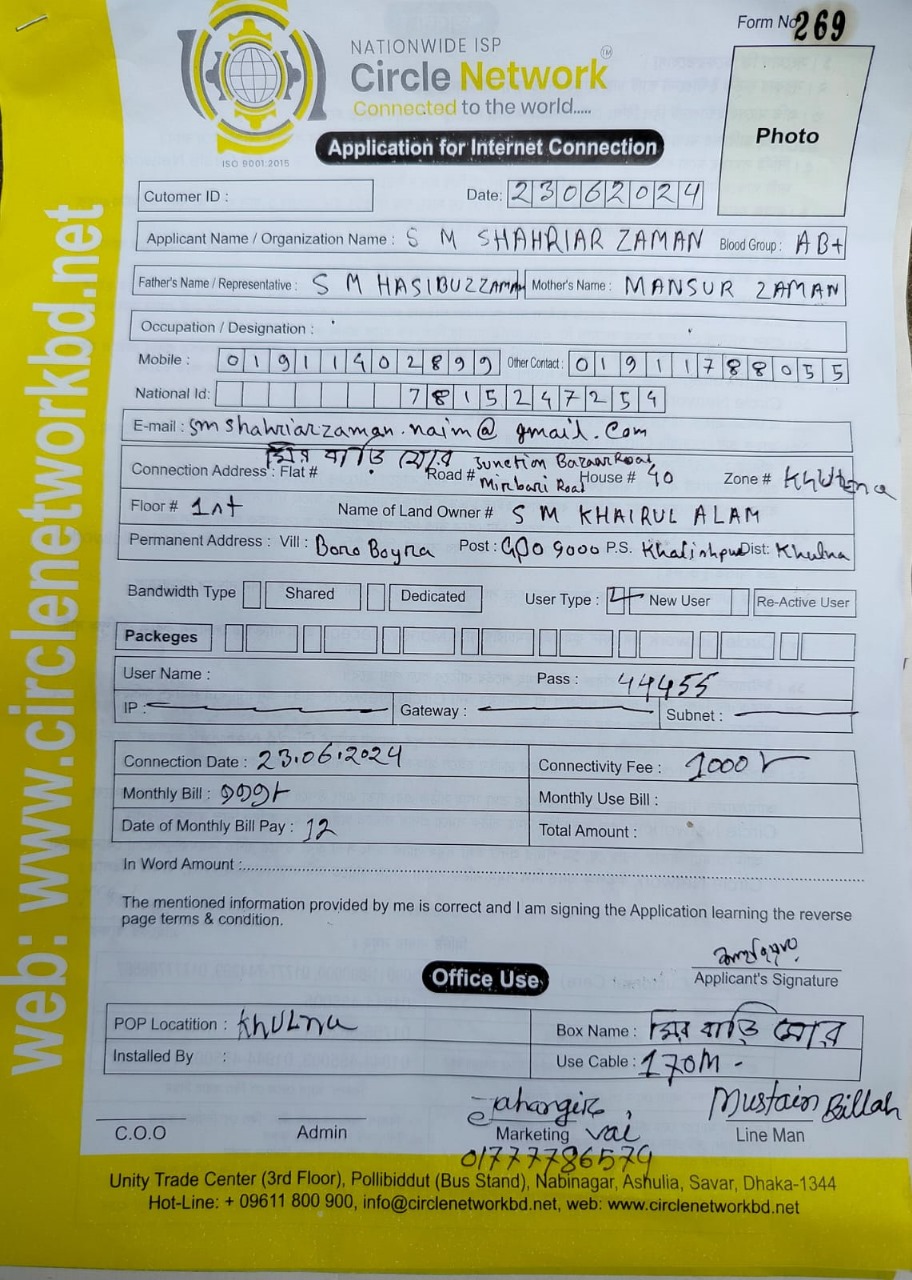 Form No 269
NATIONWIDE ISP
Circle Network TM
Connected to the world.....
ISO 9001:2015
Application for Internet Connection
Photo
Cutomer ID :
Date: 23062024
Applicant Name / Organization Name : S M SHAHRIAR ZAMAN Blood Group : AB+
Father's Name / Representative : S M HASIBUZZAMAN Mother's Name : MANSUR ZAMAN
Occupation / Designation :
Mobile : 01911402899 Other Contact : 01911788055
National Id: 7815247254
E-mail : smshahriarzaman.naim@gmail.com
মির বাড়ি মোর Junction Bazaar Road
Connection Address : Flat # Road # Mirbari Road House # 40 Zone # Khulna
Floor # 1st Name of Land Owner # S M KHAIRUL ALAM
Permanent Address : Vill : Boro Boyra Post : GPO 9000 P.S. Khalishpur Dist: Khulna
Bandwidth Type Shared Dedicated User Type : New User Re-Active User
Packeges
User Name : Pass : 44455
IP : Gateway : Subnet :
Connection Date : 23.06.2024 Connectivity Fee : 1000/-
Monthly Bill : Monthly Use Bill :
Date of Monthly Bill Pay : 12 Total Amount :
In Word Amount :
The mentioned information provided by me is correct and I am signing the Application learning the reverse
page terms & condition.
Applicant's Signature
Office Use
POP Locatition : Khulna Box Name : মির বাড়ি মোর
Installed By : Use Cable : 170M -
Jahangir Mustain Billah
C.O.O Admin Marketing vai Line Man
01777786579
Unity Trade Center (3rd Floor), Pollibiddut (Bus Stand), Nabinagar, Ashulia, Savar, Dhaka-1344
Hot-Line: + 09611 800 900, info@circlenetworkbd.net, web: www.circlenetworkbd.net
web: www.circlenetworkbd.net